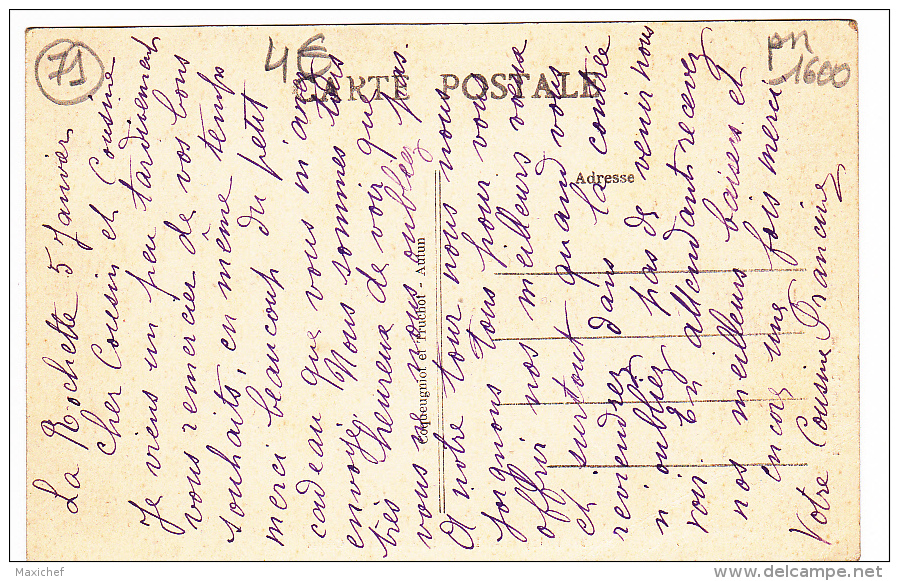 71
4€
pn
1600
CARTE POSTALE
Adresse
Coqueugniot et Truchot - Autun
La Rochette 5 Janvier
Cher Cousin et Cousine
Je viens un peu tardivement
vous remercier de vos bons
souhaits, en même temps
merci beaucoup du petit
cadeau que vous m'avez
envoyé Nous sommes tous
très heureux de voir que
vous ne nous oubliez pas
A notre tour nous nous
joignons tous pour vous
offrir nos meilleurs vœux
et surtout quand vous
reviendrez dans la contrée
n'oubliez pas de venir nous
voir En attendant recevez
nos meilleurs baisers et
encore une fois merci
Votre Cousine Francine
Maxichef
www.delcampe.net